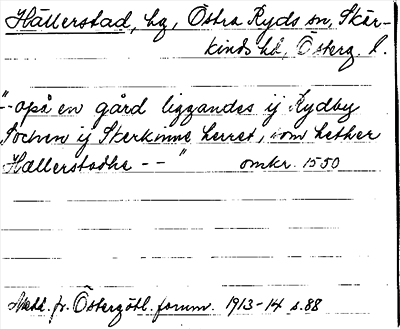 Hällerstad, hg, Östra Ryds sn, Skär-
kinds hd, Österg. l.
"-- opå en gård liggandes ij Rydby
Sochen ij Skerkinne herret, som hether
Hællerstadhe -- " omkr. 1550
Medd. fr. Östergötl. fornm. 1913-14 s. 88